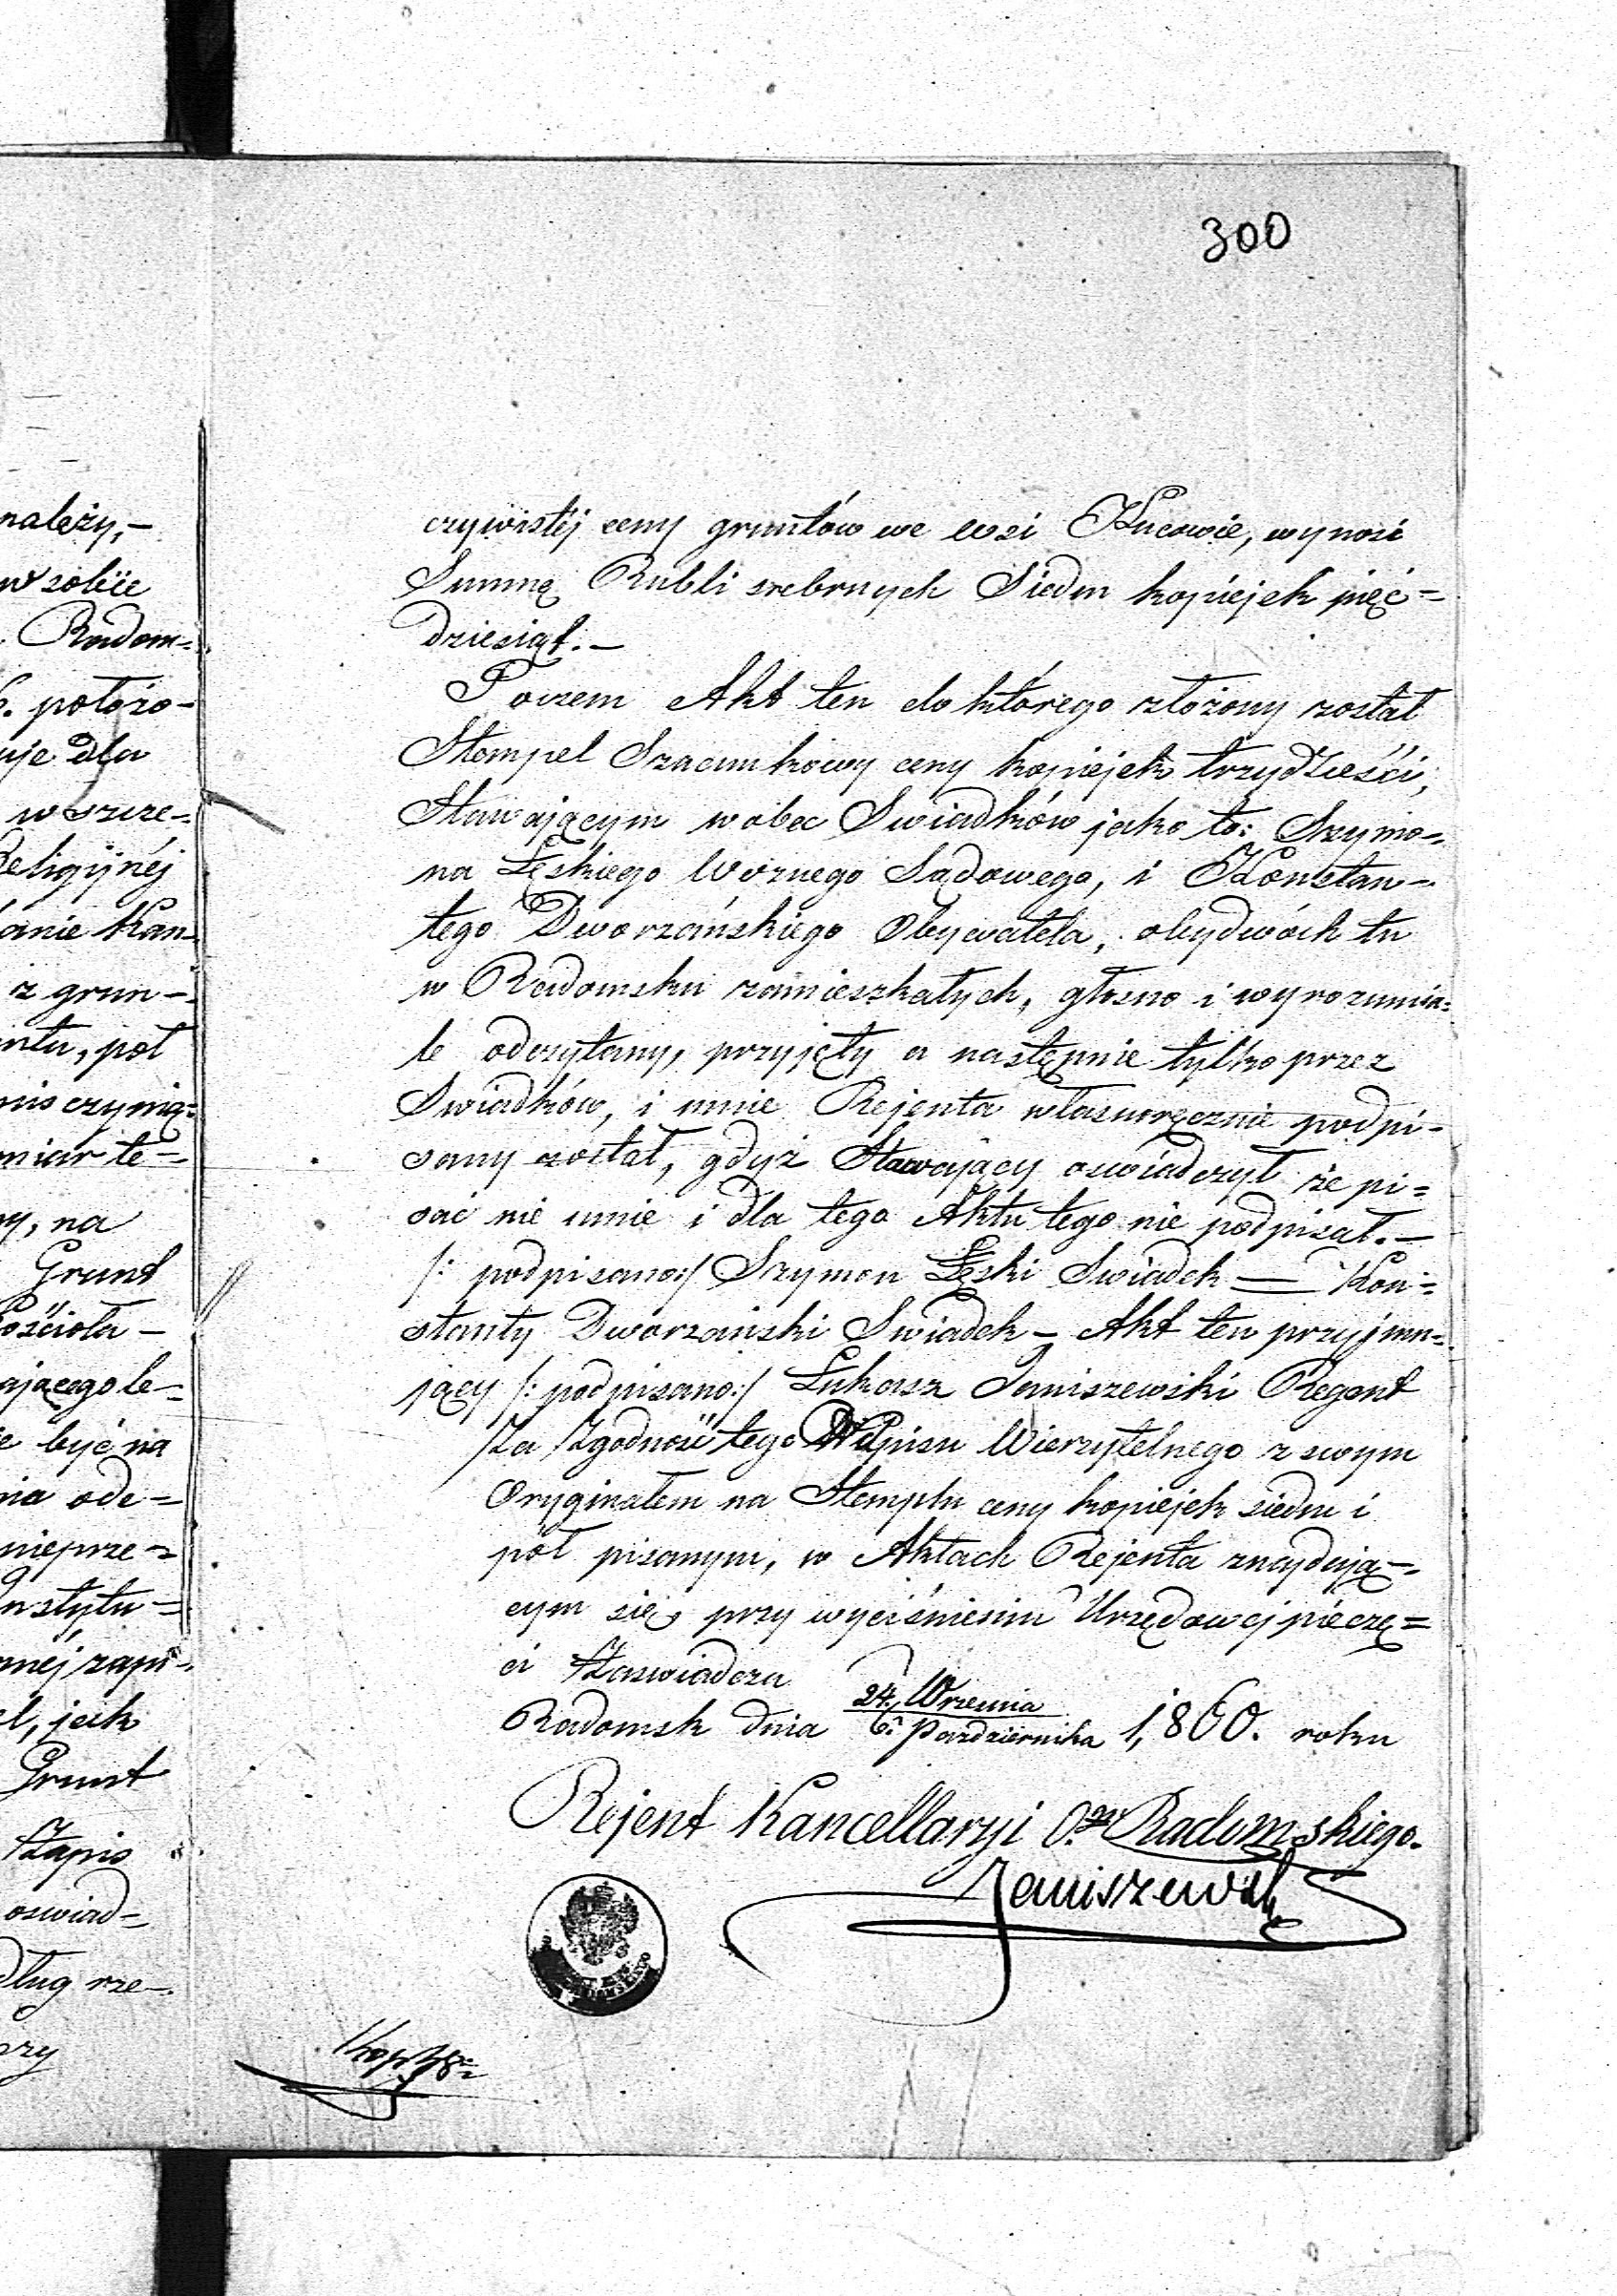 300
należy,-
w sobie
Radom-
położo-
uje dla
w szcze-
Religijnéj
Kan-
z grun-
pół
czynią-
miar te-
na
Grunt
Kościoła-
ającego le-
być na
ode-
nieprze-
Instytu-
zapi-
jak
Grunt
Zapis
oswiad-
dług rze-
czywistéj ceny gruntów we wsi Kucowie, wynosi
Summę Rubli srebrnych Siedm kopiejek pięć=
dziesiąt.-
Poczem Akt ten do którego złożony został
Stempel Szacunkowy ceny kopiejek trzydzieści,
Stawającym wobec Swiadków jako to: Szymo-
na Łęskiego Woznego Sądowego, i Konstan-
tego Dworzańskiego Obywatela, obydwóch tu
w Radomsku zamieszkałych, głosno i wyrozumia-
le odczytany, przyjęty a następnie tylko przez
Swiadków, i mnie Rejenta własnoręcznie podpi-
sany został, gdyż Stawający oswiadczył że pi=
sać nie umie i dla tego Aktu tego nie podpisał.-
/: podpisano:/ Szymon Łęski Swiadek — Kon=
stanty Dworzański Swiadek - Akt ten przyjmu-
jący /:podpisano:/ Łukasz Janiszewski Regent
Za Zgodność tego Wypisu Wierzytelnego z swym
Oryginałem na Stemplu ceny kopiejek siedm i
pół pisanym, w Aktach Rejenta znajdują-
cym się, przy wyciśnieniu Urzędowej pieczę=
ci Zaswiadcza
Radomsk dnia 24. Wrzesnia / 6. Pazdziernika 1,860. roku
Rejent Kancellaryi O.gu Radomskiego.
Janiszewski